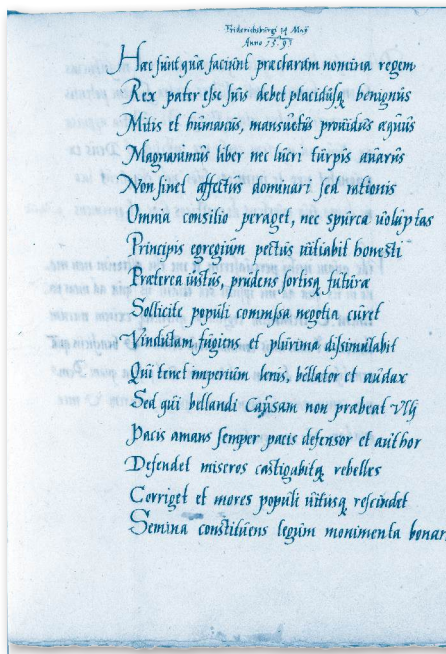 Friderichsburgi 14 Maÿ
Anno 1593
Hæc sunt quæ faciunt præclaram nomina regem
Rex pater esse suis debet placidusq benignus
Mitis et humanus, mansuetus prouidus æquus
Magnanimus liber nec lucri turpis auarus
Non sinet affectus dominari sed rationis
Omnia consilio peraget, nec spurca uoluptas
Principis egregium pectus uitiabit honesti
Præterea iustus, prudens fortisq futura
Sollicite populi commissa negotia curet
Vindictam fugiens et plurima dissimulabit
Qui tenet imperium lenis, bellator et audax
Sed qui bellandi Caussam non præbeat vllj
Pacis amans semper pacis defensor et author
Defendet miseros castigabitq rebelles
Corriget et mores populi uitiusq rescindet
Semina constituens legum monimenta bonar